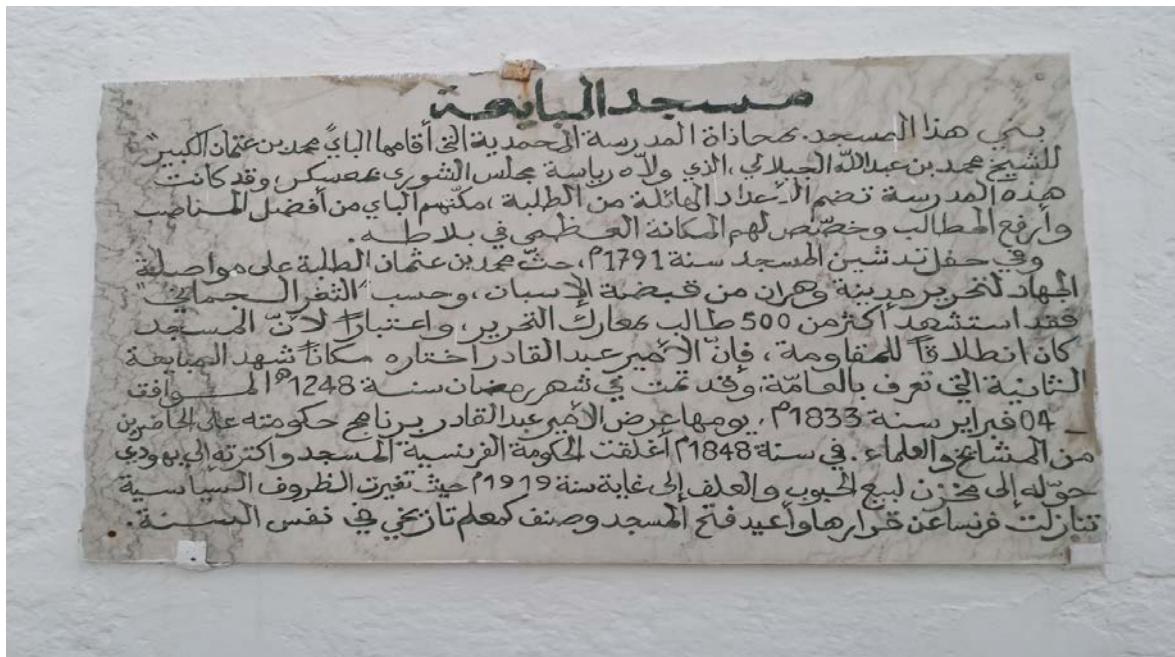 مسجد المبايعة
بني هذا المسجد بمحاذاة المدرسة المحمدية التي أقامها الباي محمد بن عثمان الكبير"
للشيخ محمد بن عبد الله الجيلالي، الذي ولاّه رياسة مجلس الشورى بمعسكر، وقد كانت
هذه المدرسة تضم الأعداد الهائلة من الطلبة، مكّنهم الباي من أفضل المناصب
وأرفع المطالب وخصّص لهم المكانة العظمى في بلاطه.
وفي حفل تدشين المسجد سنة 1791م، حثّ محمد بن عثمان الطلبة على مواصلة
الجهاد لتحرير مدينة وهران من قبضة الإسبان، وحسب "الثغر الجماني"
فقد استشهد أكثر من 500 طالب بمعارك التحرير، واعتباراً لأنّ المسجد
كان انطلاقاً للمقاومة، فإنّ الأمير عبد القادر اختاره مكاناً شهد المبايعة
الثانية التي تعرف بالعامّة، وقد تمت في شهر رمضان سنة 1248هـ الموافق
_ 04 فبراير سنة 1833م، يومها عرض الأمير عبد القادر برنامج حكومته على الحاضرين
من المشايخ والعلماء. في سنة 1848م أغلقت الحكومة الفرنسية المسجد واكترته إلى يهودي
حوّله إلى مخزن لبيع الحبوب والعلف إلى غاية سنة 1919م حيث تغيرت الظروف السياسية
تنازلت فرنسا عن قرارها وأعيد فتح المسجد وصنف كمعلم تاريخي في نفس السنة.